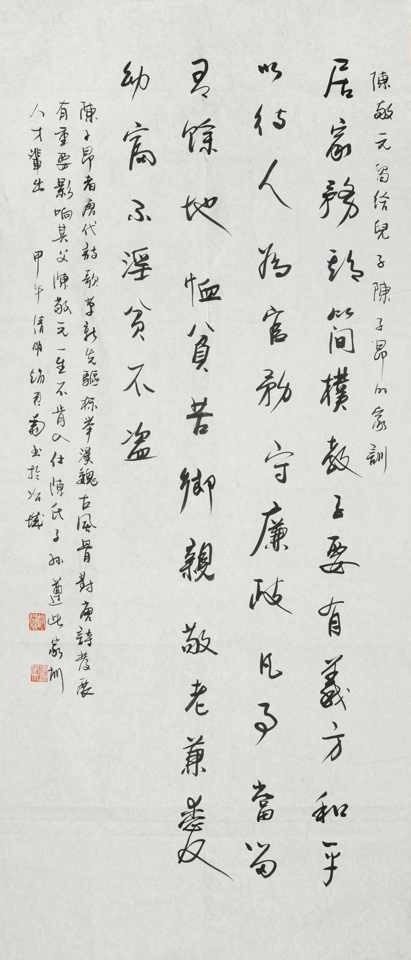 陳敬元留給兒子陳子昂的家訓
居家務期簡樸教子要有義方和平
以待人為官勤守廉政凡事當留
有餘地恤貧苦卹親敬老兼愛
幼富不淫貧不盜
陳子昂者唐代詩歌革新先驅標舉漢魏古風骨對唐詩發展
有重要影响其父陳敬元一生不肯入仕陳氏子孫遵此家訓
人才輩出 甲午清明 書於